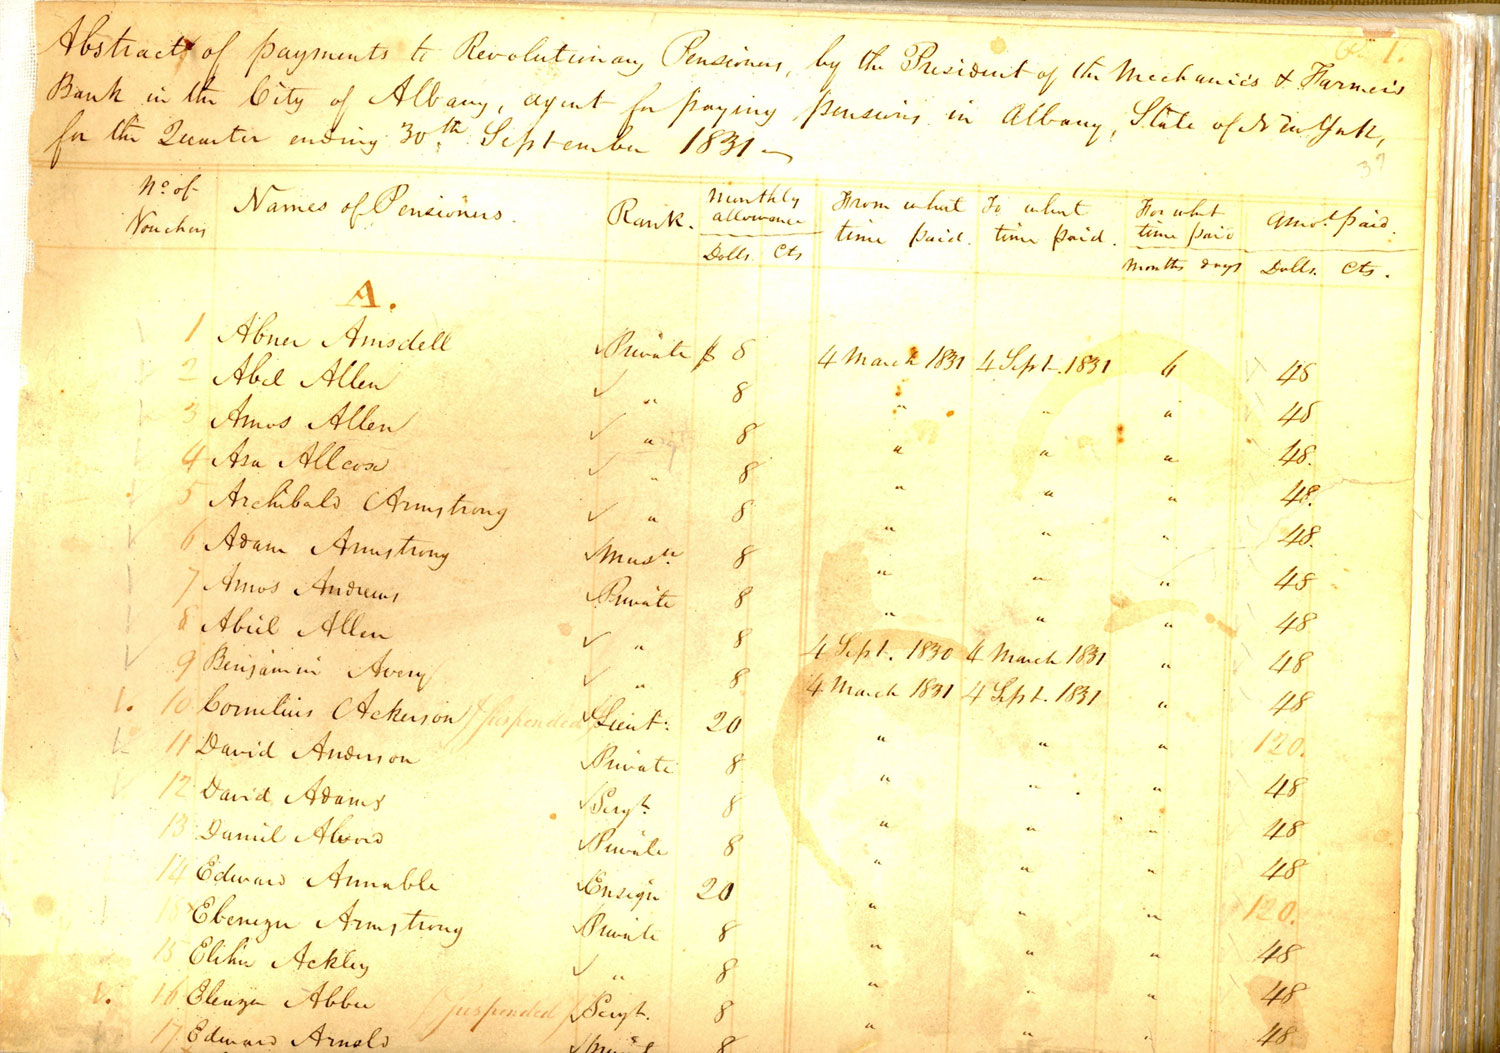 1.
Abstract of payments to Revolutionary Pensioners, by the President of the Mechanics & Farmers
Bank in the City of Albany, agent for paying pensions in Albany, State of New York,
for the Quarter ending 30th September 1831
39
No. of Vouchers Names of Pensioners. Rank. Monthly allowance From what time paid. To what time paid. For what time paid Amot. paid.
Dolls. Cts Months days Dolls. Cts.
A.
1 Abner Amsdell Private $ 8 4 March 1831 4 Sept. 1831 6 48
2 Abel Allen " 8 " " " 48
3 Amos Allen " 8 " " " 48.
4 Asa Allcox " 8 " " " 48.
5 Archibald Armstrong " 8 " " " 48.
6 Adam Armstrong 8 " " " 48
7 Amos Andrews Private 8 " " " 48
8 Abiel Allen " 8 4 Sept. 1830 4 March 1831 " 48
9 Benjamin Avery " 8 4 March 1831 4 Sept. 1831 " 48
10 Cornelius Ackerson Suspended Lieut: 20 " " " 120.
11 David Anderson Private 8 " " " 48
12 David Adams Sergt. 8 " " " 48
13 Daniel Alvord Private 8 " " " 48
14 Edward Annable Ensign 20 " " " 120.
15 Ebenezer Armstrong Private 8 " " " 48
15 Elihu Ackley " 8 " " " 48
16 Eleazer Abbee Suspended Sergt. 8 " " 48
17 Edward Arnold 8